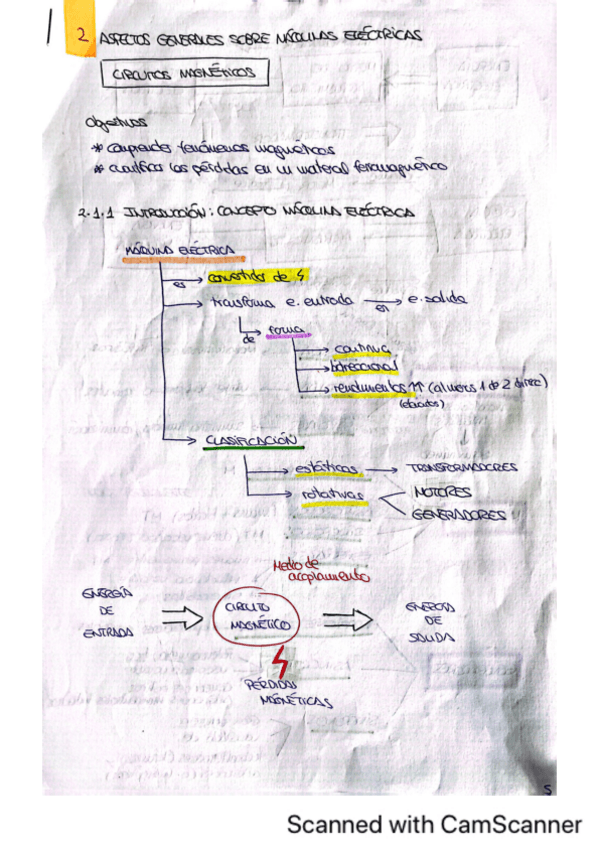 2 ASPECTOS GENERALES SOBRE MÁQUINAS ELÉCTRICAS
CIRCUITOS MAGNÉTICOS
Objetivos
* comprender fenómenos magnéticos
* cuantificar las pérdidas en un material ferromagnético
2.1.1 INTRODUCCIÓN: CONCEPTO MÁQUINA ELÉCTRICA
MÁQUINA ELÉCTRICA
es convertidor de
transforma e. entrada en e. salida
de forma
continua
bidireccional
rendimientos ↑↑ (al menos 1 de 2 direc)
(elevados)
CLASIFICACIÓN
estáticas → TRANSFORMADORES
rotativas MOTORES
GENERADORES
Medio de
acoplamiento
ENERGÍA DE ENTRADA
CIRCUITO MAGNÉTICO
ENERGÍA DE SALIDA
PÉRDIDAS
MAGNÉTICAS
5
Scanned with CamScanner